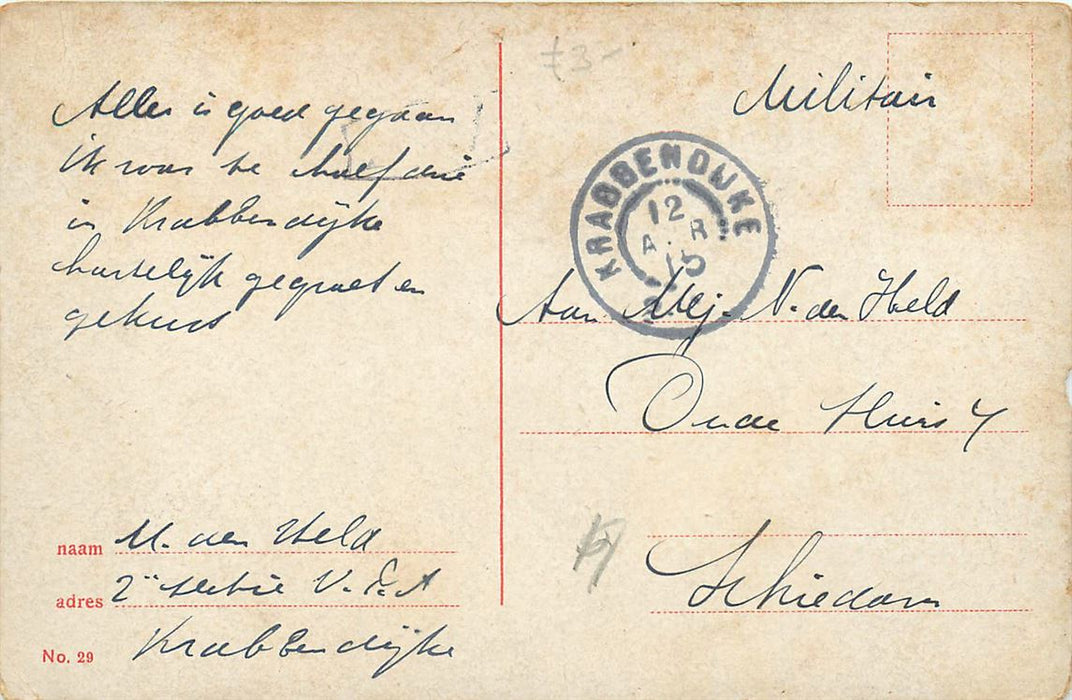 Alles is goed gegaan
ik was te half drie
in Krabbendijke
hartelijk gegroet en
gekust
naam M. den Held
adres 2e sectie V.E.A
Krabbendijke
No. 29
£3-
Militair
KRABBENDIJKE
12
15
Aan Mej. N. den Held
Oude Huis 4
Schiedam